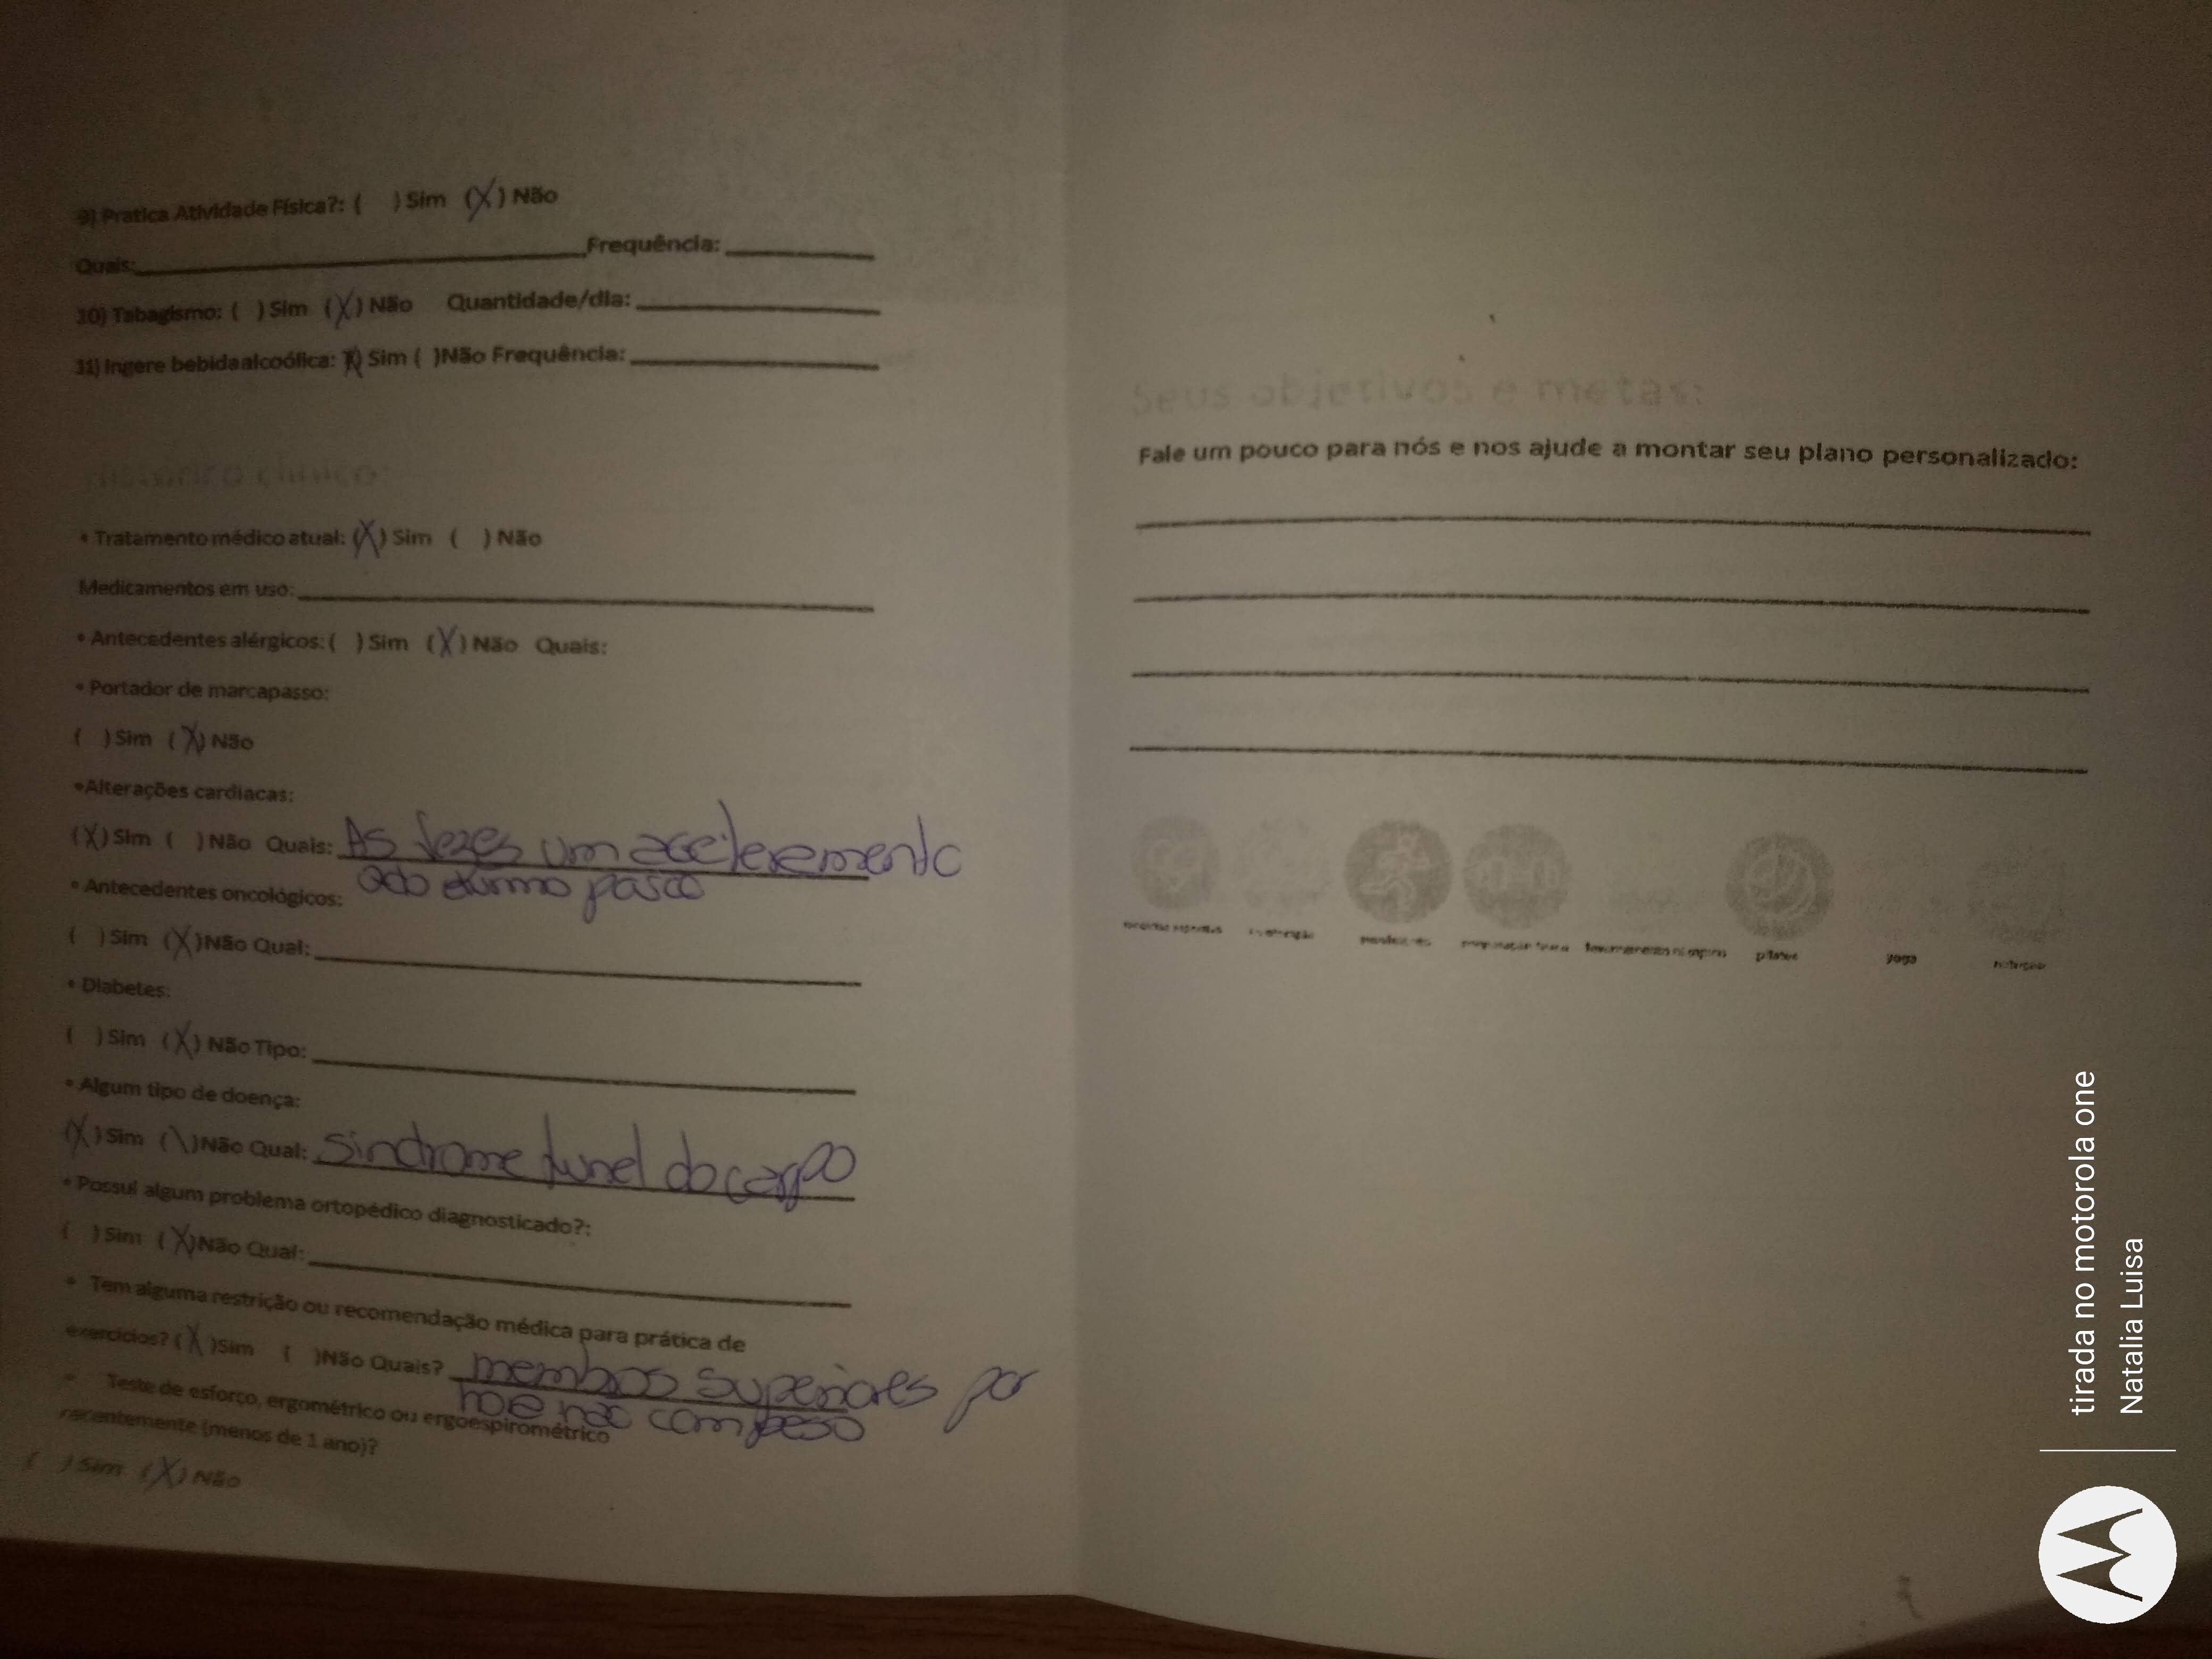 9) Pratica Atividade Física?: ( ) Sim (X) Não
Quais:____________________Frequência:__________
10) Tabagismo: ( ) Sim (X) Não Quantidade/dia:__________
11) Ingere bebida alcoólica: (X) Sim ( )Não Frequência:__________
Histórico clínico:
• Tratamento médico atual: (X) Sim ( ) Não
Medicamentos em uso:____________________
• Antecedentes alérgicos: ( ) Sim (X) Não Quais:
• Portador de marcapasso:
( ) Sim (X) Não
•Alterações cardíacas:
(X) Sim ( ) Não Quais: As vezes um aceleremento
• Antecedentes oncológicos: qdo durmo passa
( ) Sim (X) Não Qual:__________
• Diabetes:
( ) Sim (X) Não Tipo:__________
• Algum tipo de doença:
(X) Sim (\) Não Qual: Sindrome tunel do carpo
• Possui algum problema ortopédico diagnosticado?:
( ) Sim (X)Não Qual:__________
• Tem alguma restrição ou recomendação médica para prática de
exercícios? (X)Sim ( )Não Quais? membros superiores por
• Teste de esforço, ergométrico ou ergoespirométrico não com peso
recentemente (menos de 1 ano)?
( ) Sim (X) Não
Seus objetivos e metas:
Fale um pouco para nós e nos ajude a montar seu plano personalizado:
pilates
yoga
tirada no motorola one
Natalia Luisa